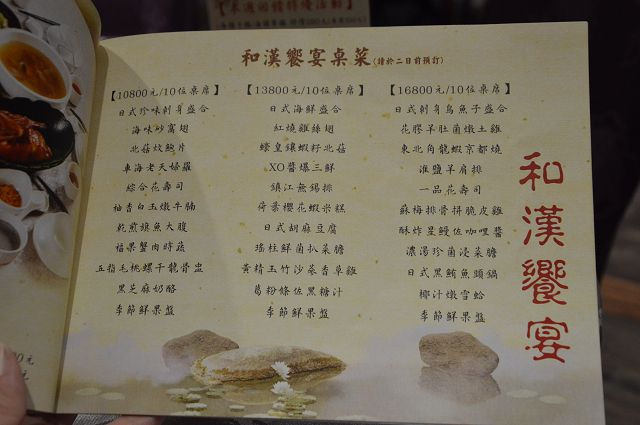 和漢饗宴桌菜(請於二日前預訂)
【10800元/10位桌席】
日式珍味刺身盛合
海味砂窩翅
北菇炆鮑片
車海老天婦羅
綜合花壽司
柚香白玉燉牛腩
乾煎旗魚大腹
福果蟹肉時蔬
五指毛桃螺干龍骨盅
黑芝麻奶酪
季節鮮果盤
【13800元/10位桌席】
日式海鮮盛合
紅燒雞絲翅
蠔皇鑲蝦籽北菇
XO醬爆三鮮
鎮江無錫排
荷葉櫻花蝦米糕
日式胡麻豆腐
瑤柱鮮菌扒菜膽
黃精玉竹沙蔘香草雞
葛粉條佐黑糖汁
季節鮮果盤
【16800元/10位桌席】
日式刺身烏魚子盛合
花膠羊肚菌燉土雞
東北角龍蝦京都燒
淮鹽羊肩排
一品花壽司
蘇梅排骨拼脆皮雞
酥炸星鰻佐咖哩醬
濃湯珍菌浸菜膽
日式黑鮪魚頭鍋
椰汁燉雪蛤
季節鮮果盤
和漢饗宴